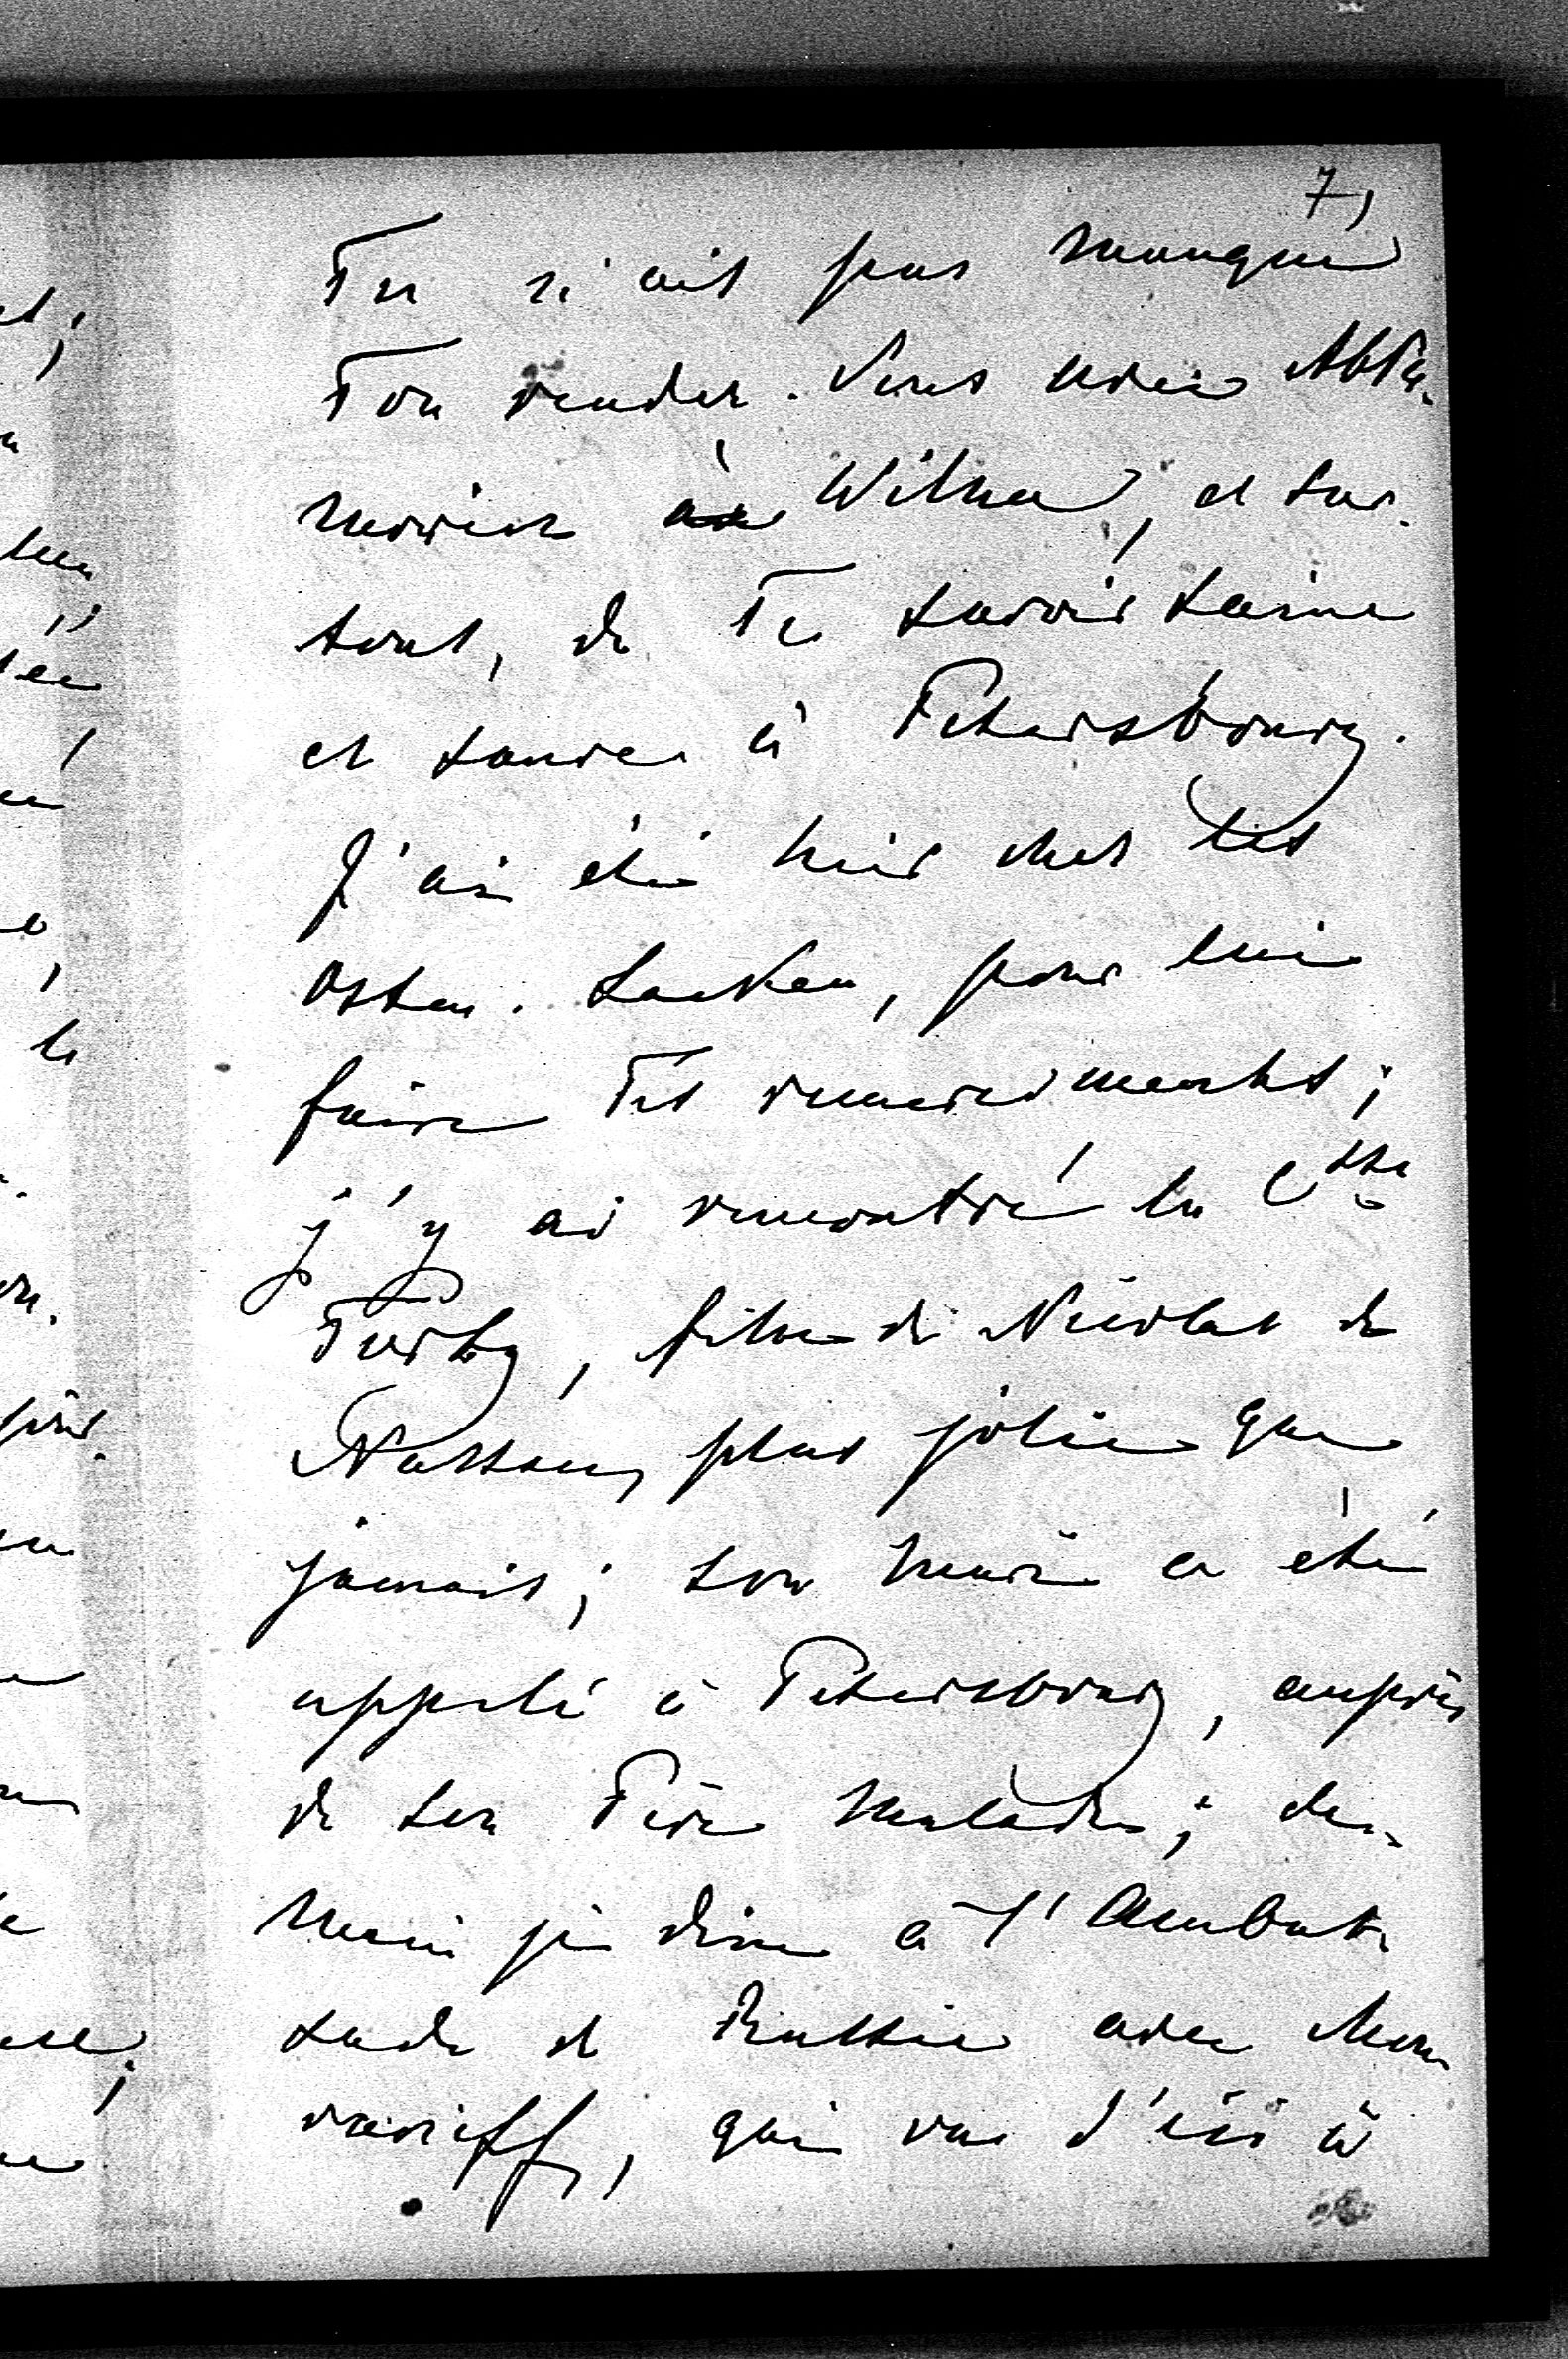 7,
Tu n'ais pas manqué
Ton render. Vous avec Abla-
mowicz à Wilna, et sur-
tout, de Te savoir saine
et sauve à Petersbourg.
J'ai été hier chez les
Osten. Sacken, pour lui
faire Tes remerciments;
j'y ai rencontré la Csse
Torby, fille de Nicolas de
Nassau, plus jolie que
jamais; son mari a été
appelé à Petersbourg, auprès
de son Père malade; de-
main je dine à l'Ambas-
sade de Russie avec Mou-
ravieff, qui va d'ici à